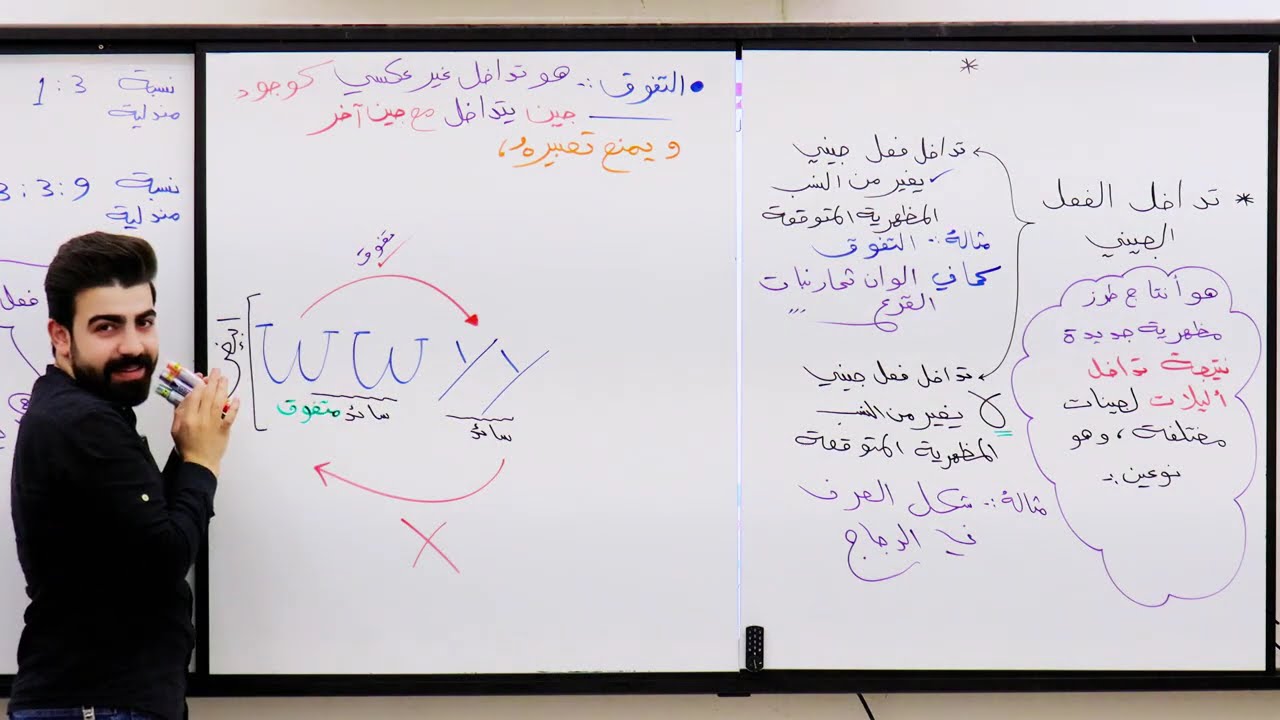 *
* تداخل الفعل
الجيني
هو أنتاج طرز
مظهرية جديدة
نتيجة تداخل
أليلات لجينات
مختلفة ، وهو
نوعين :-
تداخل فعل جيني
يغير من النسب
المظهرية المتوقعة
مثالهُ :- التفوق
كما في الوان ثمار نبات
القرع ,,,
تداخل فعل جيني
لا يغير من النسب
المظهرية المتوقعة
مثالهُ :- شكل العرف
في الدجاج
• التفوق :- هو تداخل غير عكسي كوجود
جين يتداخل مع جين آخر
و يمنع تعبيرهُ ،
تفوق
W W Y Y
سائد متفوق
سائد
X
نسبة 3 : 1
مندلية
نسبة 9 : 3 : 3
مندلية
فعل